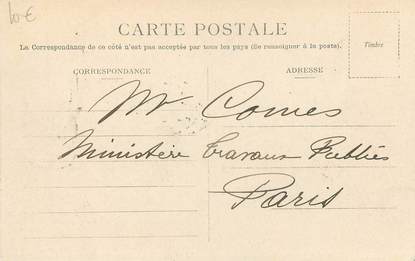 10 €
CARTE POSTALE
La Correspondance de ce côté n'est pas acceptée par tous les pays (Se renseigner à la poste).
Timbre
CORRESPONDANCE
ADRESSE
Mr Comes
Ministère Travaux Publics
Paris